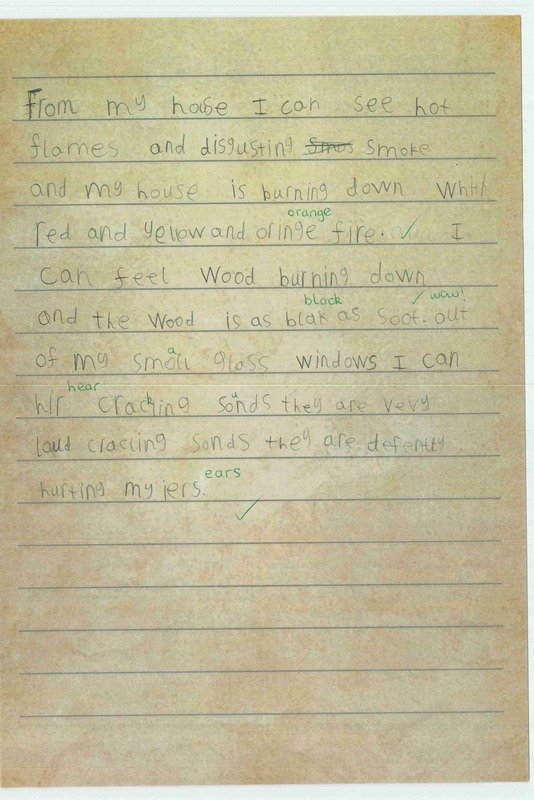 From my house I can see hot
flames and disgusting smoke
and my house is burning down whith
orange
red and yellow and oringe fire. I
can feel wood burning down
black wow!
and the wood is as blak as soot. out
a
of my smoll glass windows I can
hear k u
hir cracking sonds they are very
loud craciing sonds they are defently
ears
hurting my iers.